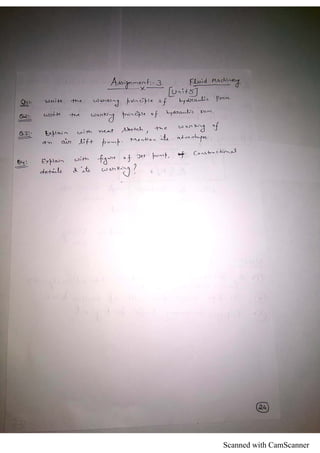 Assignment:-3 Fluid Machinery
[Unit 5]
Q1:- Write the working principle of hydraulic
Q2:- Write the working principle of hydraulic ram
Q3:- Explain with neat sketch, the working of
an air lift pump. Mention its
Q4:- Explain with figure of Jet pump, Constructional
details & its working?
24
Scanned with CamScanner